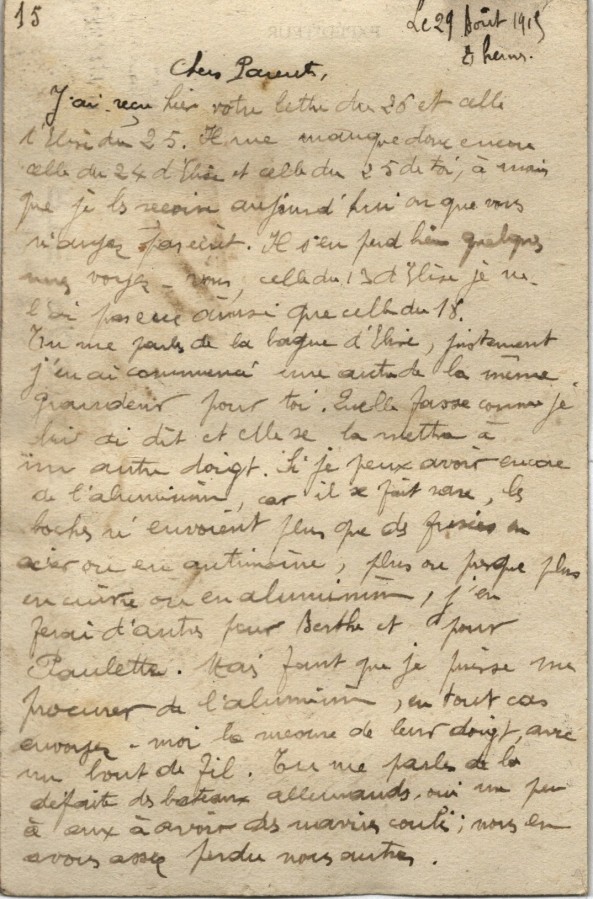 15
Le 29 Août 1915
8 heures.
Chers Parents,
J'ai reçu hier votre lettre du 26 et celle
d'Elise du 25. Il me manque donc encore
celle du 24 d'Elise et celle du 25 de toi, à moins
que je les reçoive aujourd'hui ou que vous
n'ayez pas écrit. Il s'en perd bien quelques
unes voyez-vous, celle du 13 d'Elise je ne
l'ai pas eue ainsi que celle du 18.
Tu me parles de la bague d'Elise, justement
j'en ai commencé une autre de la même
grandeur pour toi. Qu'elle fasse comme je
lui ai dit et elle se la mettra à
un autre doigt. Si je peux avoir encore
de l'aluminium, car il se fait rare, les
boches n'envoient plus que des fusées en
acier ou en antimoine, plus ou presque plus
en cuivre ou en aluminium, j'en
ferai d'autres pour Berthe et pour
Paulette. Mais faut que je puisse me
procurer de l'aluminium, en tout cas
envoyez-moi la mesure de leur doigt, avec
un bout de fil. Tu me parles de la
défaite des bateaux allemands, oui un peu
à eux à avoir des navires coulés ; nous en
avons assez perdu nous autres.